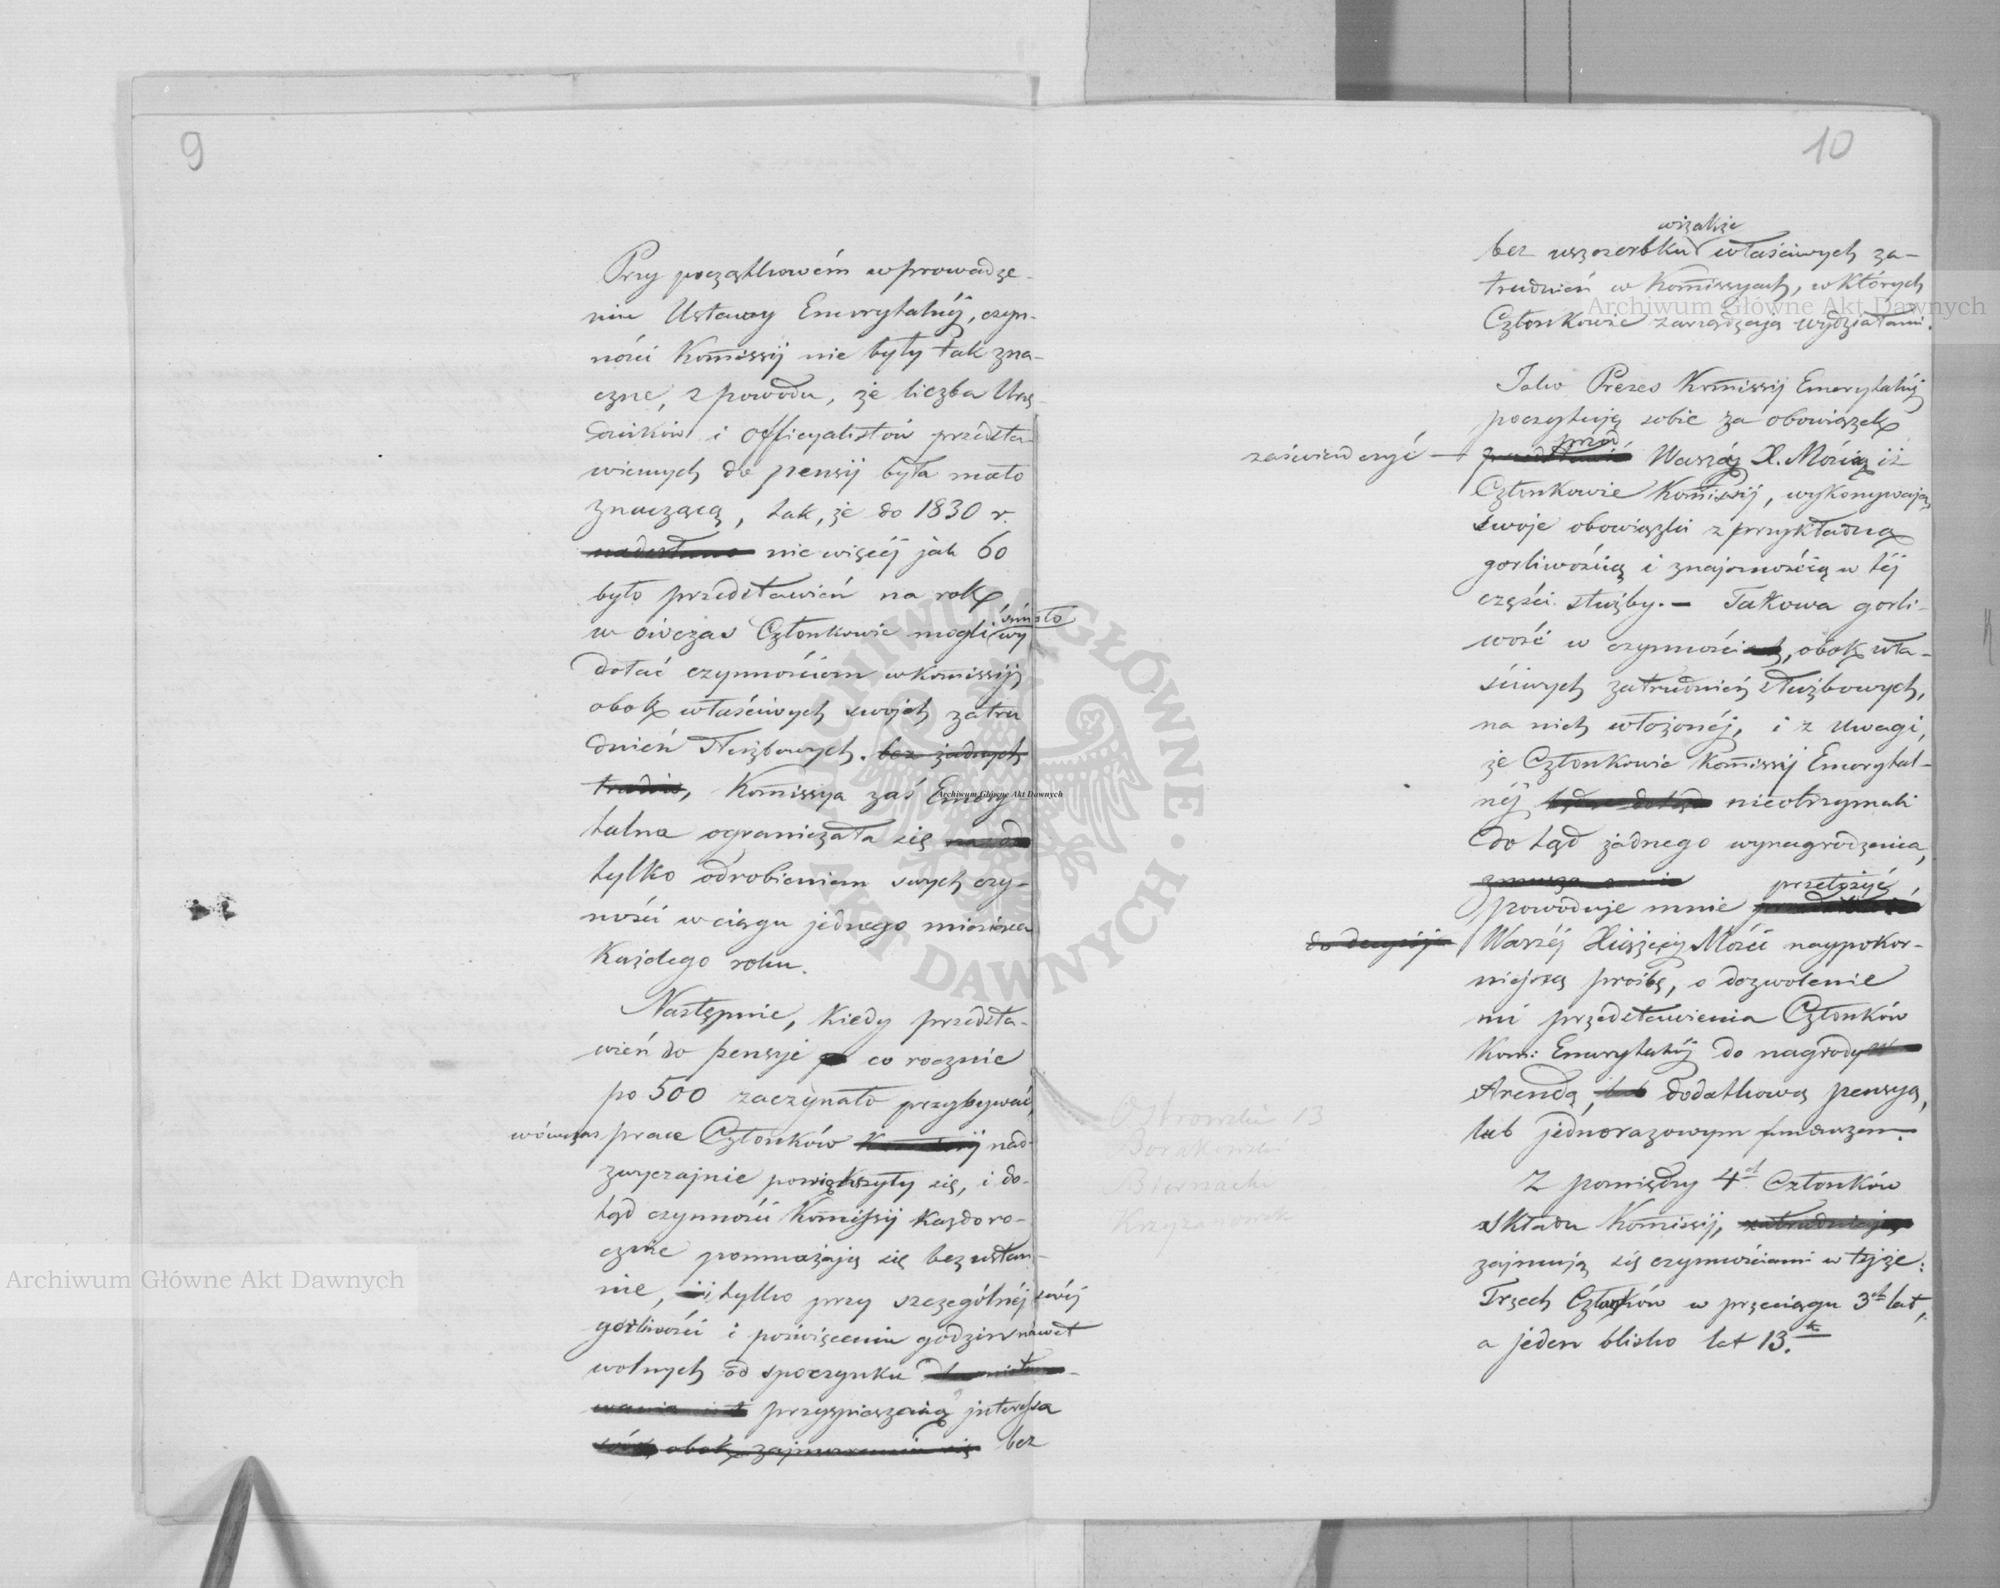 9
Przy początkowém wprowadze-
niu Ustawy Emerytalnéj, czyn-
ności Kommissyi nie były tak zna-
czne, z powodu, że liczba Urzę-
dników i officyalistów przedsta-
wionych do pensyi była mało
znaczącą, tak, że do 1830 r.
nadesłano nie więcéj jak 60
było przedstawień na rok,
w ówczas Członkowie mogli śmiało wy
dołać czynnościom w Komissyi,
obok właściwych swojch zatru
dnień służbowych. bez żadnych
trudów, Kommissya zaś Emery
talna ograniczała się
tylko odrobieniem swych czy-
ności w ciągu jednego miesiąca
Każdego roku.
Następnie, kiedy przedsta-
wień do pensyi co rocznie
po 500 zaczynało przybywać,
wówczas prace Członków nad-
zwyczajnie powiększyły się, i do-
tąd czynności Komissyi Każdoro-
cznie pomnażają się bezustan-
nie, i tylko przy szczególnéj swéj
gorliwości i poświęceniu godzin nawet
wolnych od spoczynku
przyspieszają interessa
obok zajmowania się bez
Archiwum Główne Akt Dawnych
10
wszakże
bez uszczerbku właściwych za-
trudnień w Komissyach, w których
Członkowie zarządzają wydziałami.
Jako Prezes Komissyi Emerytalnéj
poczytuję sobie za obowiązek
zaświadczyć — przed Waszą X. Mością iż
Członkowie Komissyi, wykonywają
swoje obowiązki z przykładną
gorliwością i znajomością w téj
części służby. — Takowa gorli-
wość w czynności, obok wła-
ściwych zatrudnień służbowych,
na nich włożonéj, i z uwagi,
że Członkowie Komissyi Emerytal-
néj nieotrzymali
do tąd żadnego wynagrodzenia,
zmusza mnie przełożyć
powoduje mnie
do decyzyi Waszéj Xiążęcéj Mości naypokor-
niejszą proźbę, o dozwolenie
mi przedstawienia Członków
Kom: Emerytalnéj do nagrody
Arendą, lub dodatkową pensyą,
lub jednorazowym funduszem.
Z pomiędzy 4ch Członków
składu Komissyi,
zajmują się czynnościami w téjże:
Trzech Członków w przeciągu 3ch lat,
a jeden blisko lat 13.
Ostrowski 13
Biernacki
Krzyżanowski
Archiwum Główne Akt Dawnych
Archiwum Główne Akt Dawnych
ARCHIWUM GŁÓWNE · AKT DAWNYCH ·